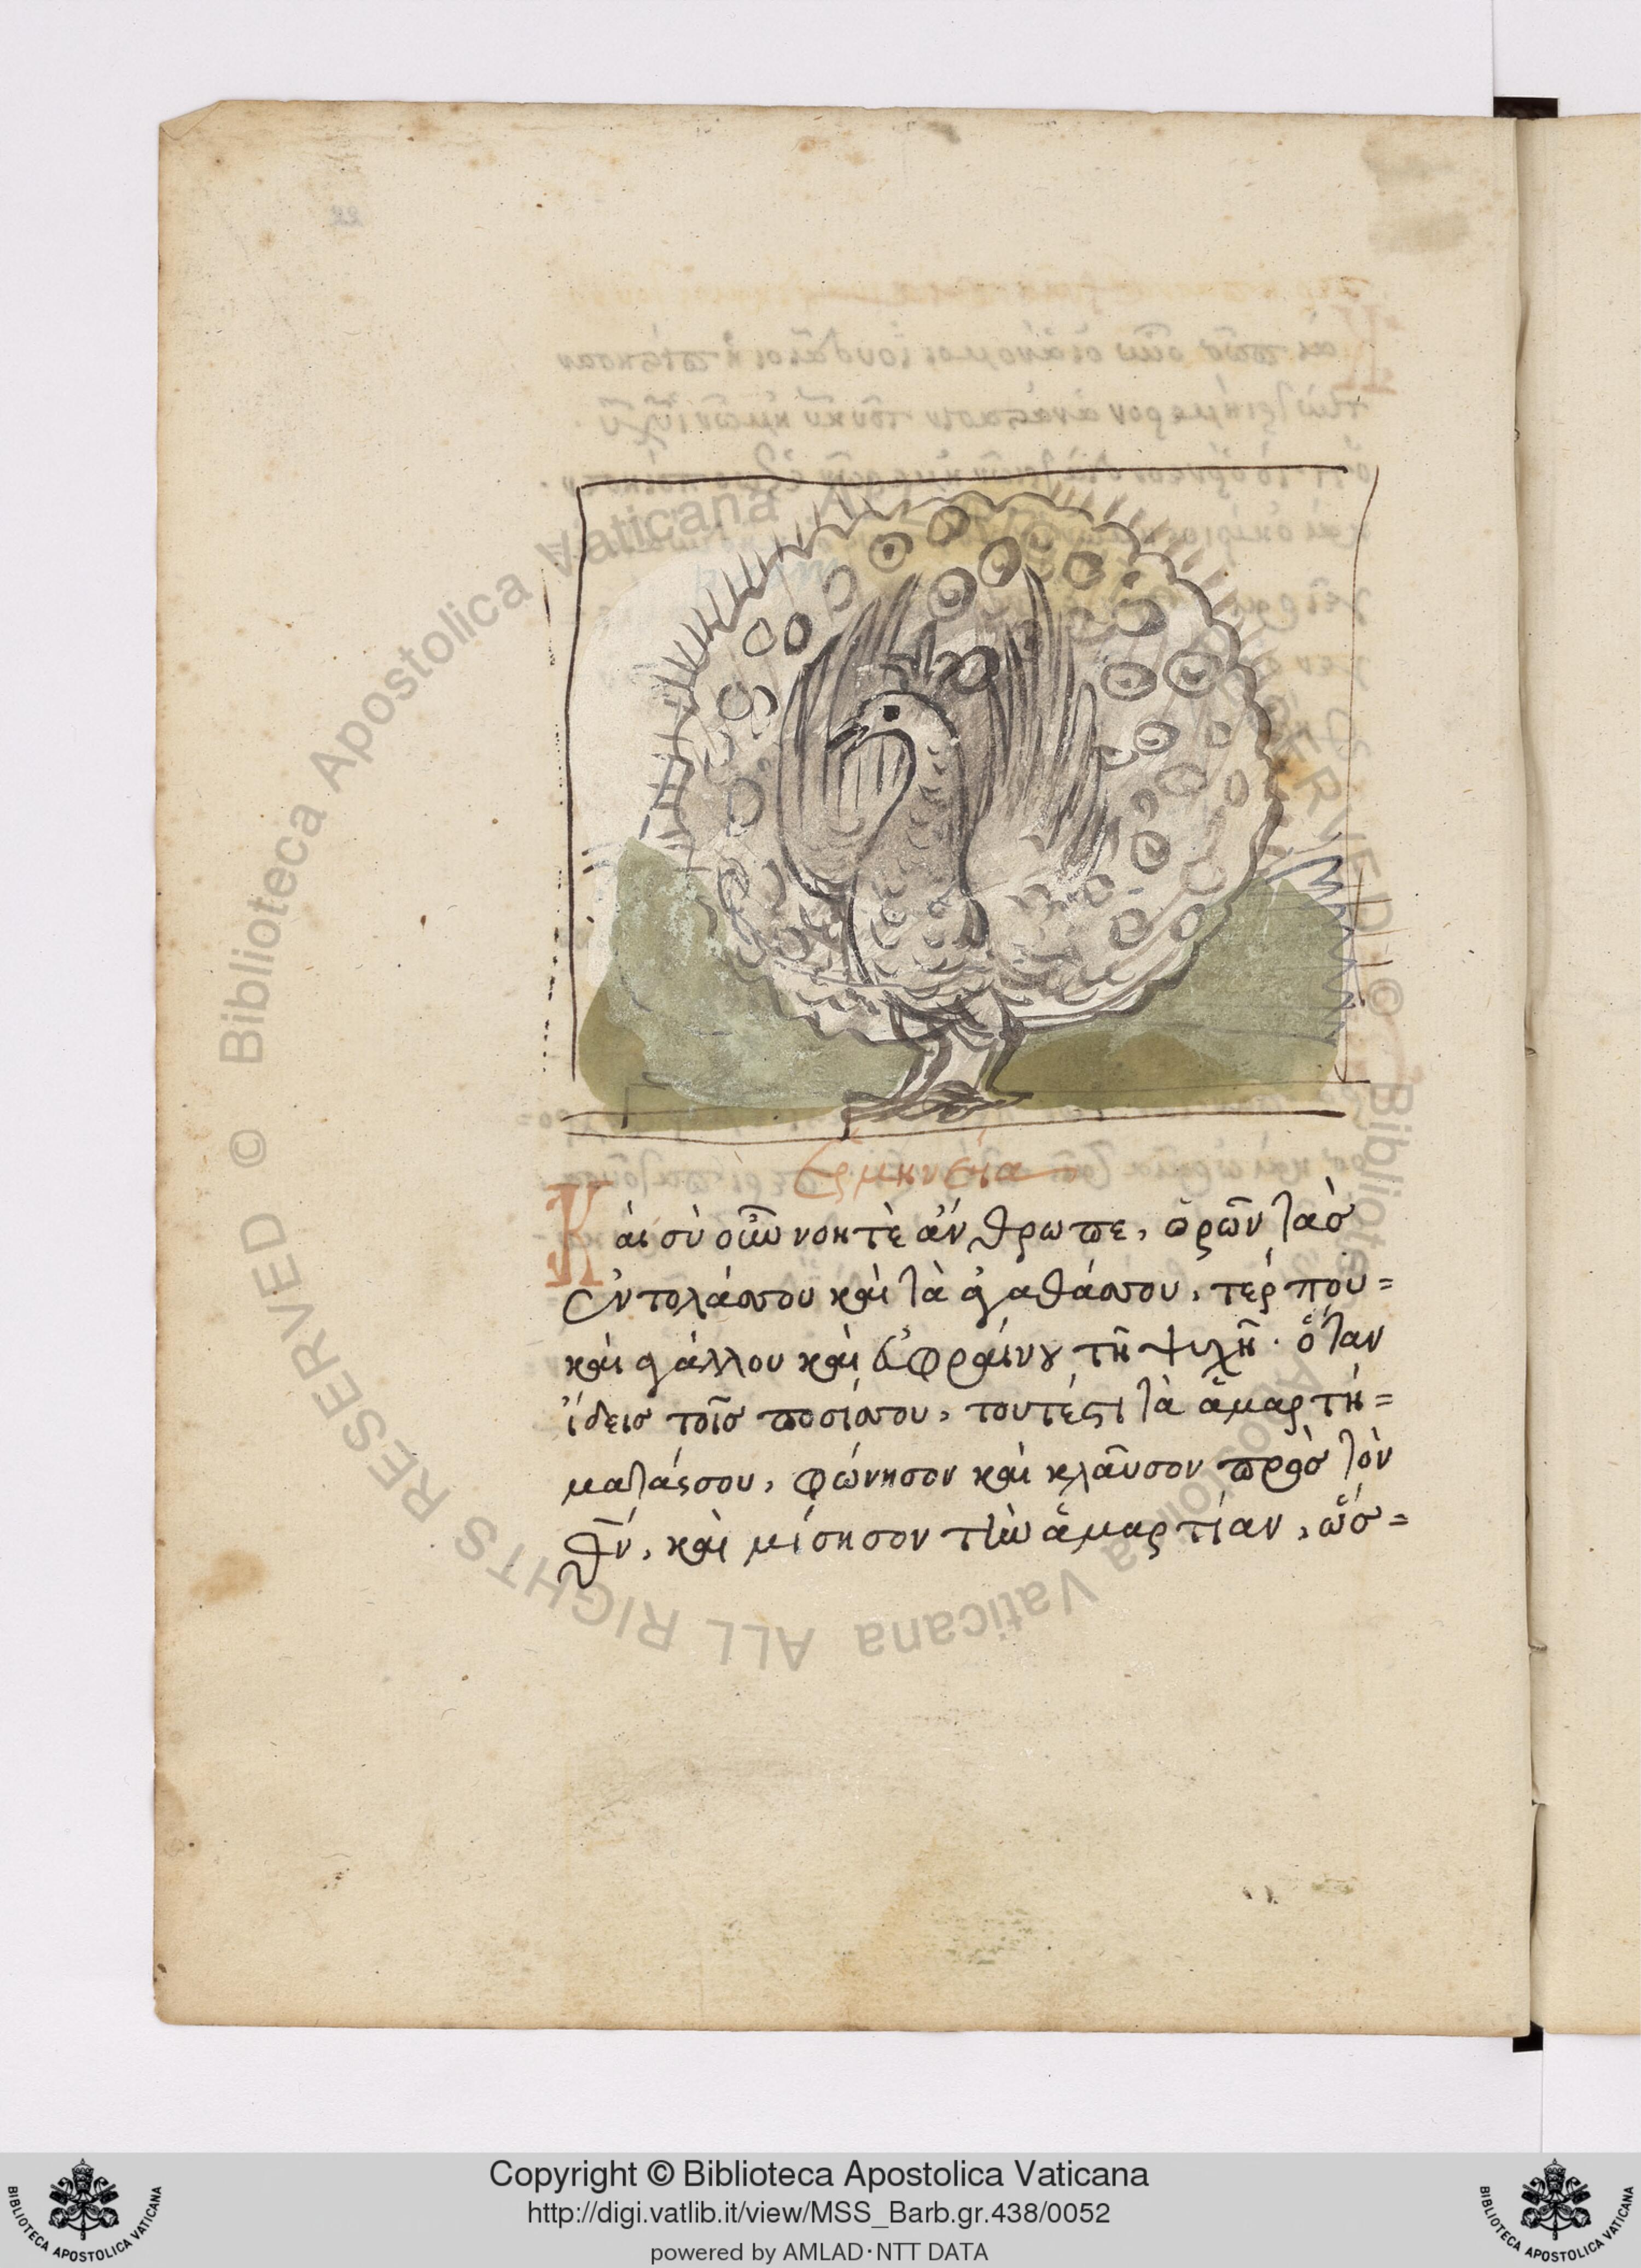 Ερμηνεία
Και σὺ οὖν νοητὲ ἄνθρωπε, ὁρῶν τὰσ
ἐντολάσσου καὶ τὰ ἀγαθάσου, τέρπου=
καὶ ἀγάλλου καὶ εὐφραίνου τῆ ψυχῆ· ὅταν
ἴδεισ τοῖσ ποσίσου, τουτέστι τὰ ἁμαρτή=
ματάσσου, φώνησον καὶ κλαῦσον πρὸσ τὸν
θν̄, καὶ μίσησον τὴν ἁμαρτίαν, ὥσ=
Copyright © Biblioteca Apostolica Vaticana
http://digi.vatlib.it/view/MSS_Barb.gr.438/0052
powered by AMLAD·NTT DATA
BIBLIOTECA APOSTOLICA VATICANA
BIBLIOTECA APOSTOLICA VATICANA
© Biblioteca Apostolica Vaticana ALL RIGHTS RESERVED © Biblioteca Apostolica Vaticana ALL RIGHTS RESERVED